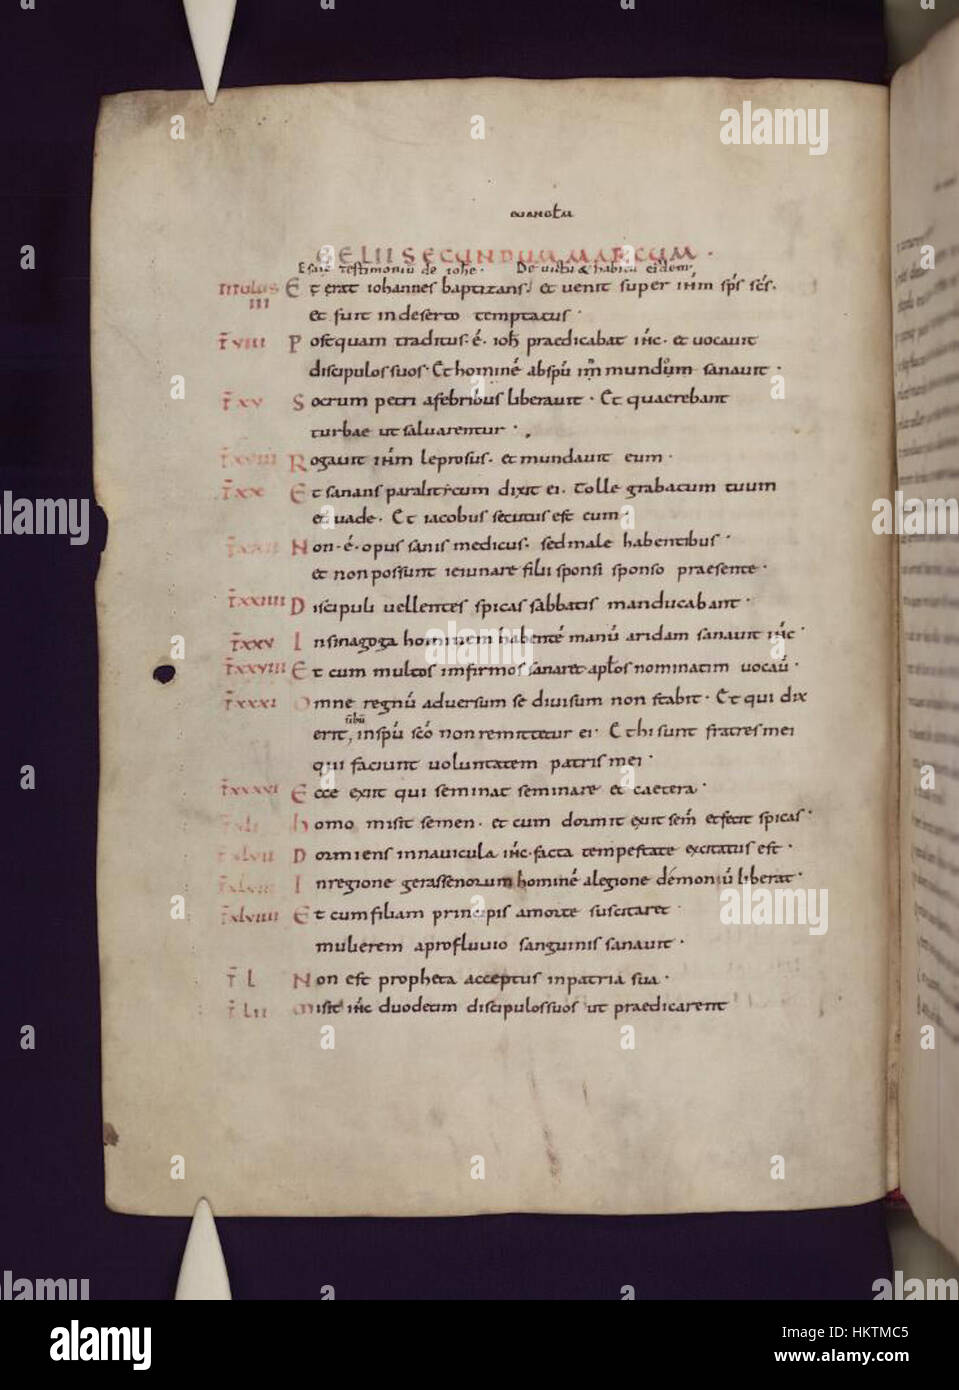 euangeliu
GELII SECUNDUM MARCUM ·
Esaie testimoniu de iohe · De uictu & habitu eidem
Titulus III Et erat iohannes baptizans / et uenit super ihm sps scs ·
et fuit in deserto temptatus ·
t̄ VIII Postquam traditus · ē · ioh praedicabat ihc · et uocauit
discipulos suos · Et hominē abspū immundum sanauit ·
t̄ XV Socrum petri a febribus liberauit · Et quaerebant
turbae ut saluarentur ·
t̄ XVIII Rogauit ihm leprosus · et mundauit eum ·
t̄ XX Et sanans paraliticum dixit ei · Tolle grabatum tuum
et uade · Et iacobus secutus est eum ·
t̄ XXII Non · ē · opus sanis medicus · sed male habentibus ·
et non possunt ieiunare filii sponsi sponso praesente ·
t̄ XXIIII Discipuli uellentes spicas sabbatis manducabant ·
t̄ XXV In sinagoga hominem habentē manū aridam sanauit ihc ·
t̄ XXVIII Et cum multos infirmos sanaret aplos nominatim uocaū ·
t̄ XXXI Omne regnū aduersum se diuisum non stabit · Et qui dix
erit, in spū scō non remittetur ei · Et hi sunt fratres mei
qui faciunt uoluntatem patris mei ·
t̄ XXXVI Ecce exiit qui seminat seminare et caetera ·
t̄ XLI homo misit semen · et cum dormit exit sem̄ et fecit spicas ·
t̄ XLVII Dormiens in nauicula ihc · facta tempestate excitatus est ·
t̄ XLVIII In regione gerassenorum hominē a legione demoniū liberat ·
t̄ XLVIIII Et cum filiam principis a morte suscitaret
mulierem a profluuio sanguinis sanauit ·
t̄ L Non est propheta acceptus in patria sua ·
t̄ LII Misit ihc duodecim discipulos suos ut praedicarent
alamy
alamy
Image ID: HKTMC5
www.alamy.com